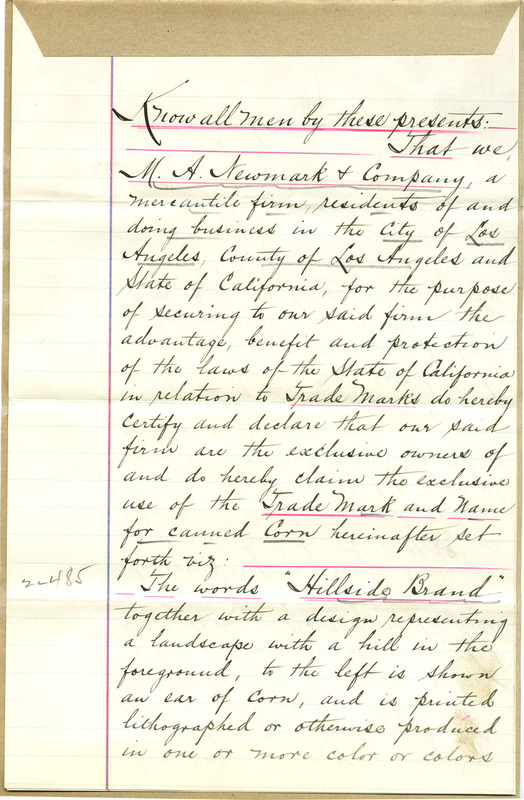 Know all men by these presents:
That we,
M. A. Newmark & Company, a
mercantile firm, residents of and
doing business in the City of Los
Angeles, County of Los Angeles and
State of California, for the purpose
of securing to our said firm the
advantage, benefit and protection
of the laws of the State of California
in relation to Trade Marks do hereby
certify and declare that our said
firm are the exclusive owners of
and do hereby claim the exclusive
use of the Trade Mark and Name
for canned Corn hereinafter set
forth viz:
2-485
The words "Hillside Brand"
together with a design representing
a landscape with a hill in the
foreground, to the left is shown
an ear of corn, and is printed
lithographed or otherwise produced
in one or more color or colors